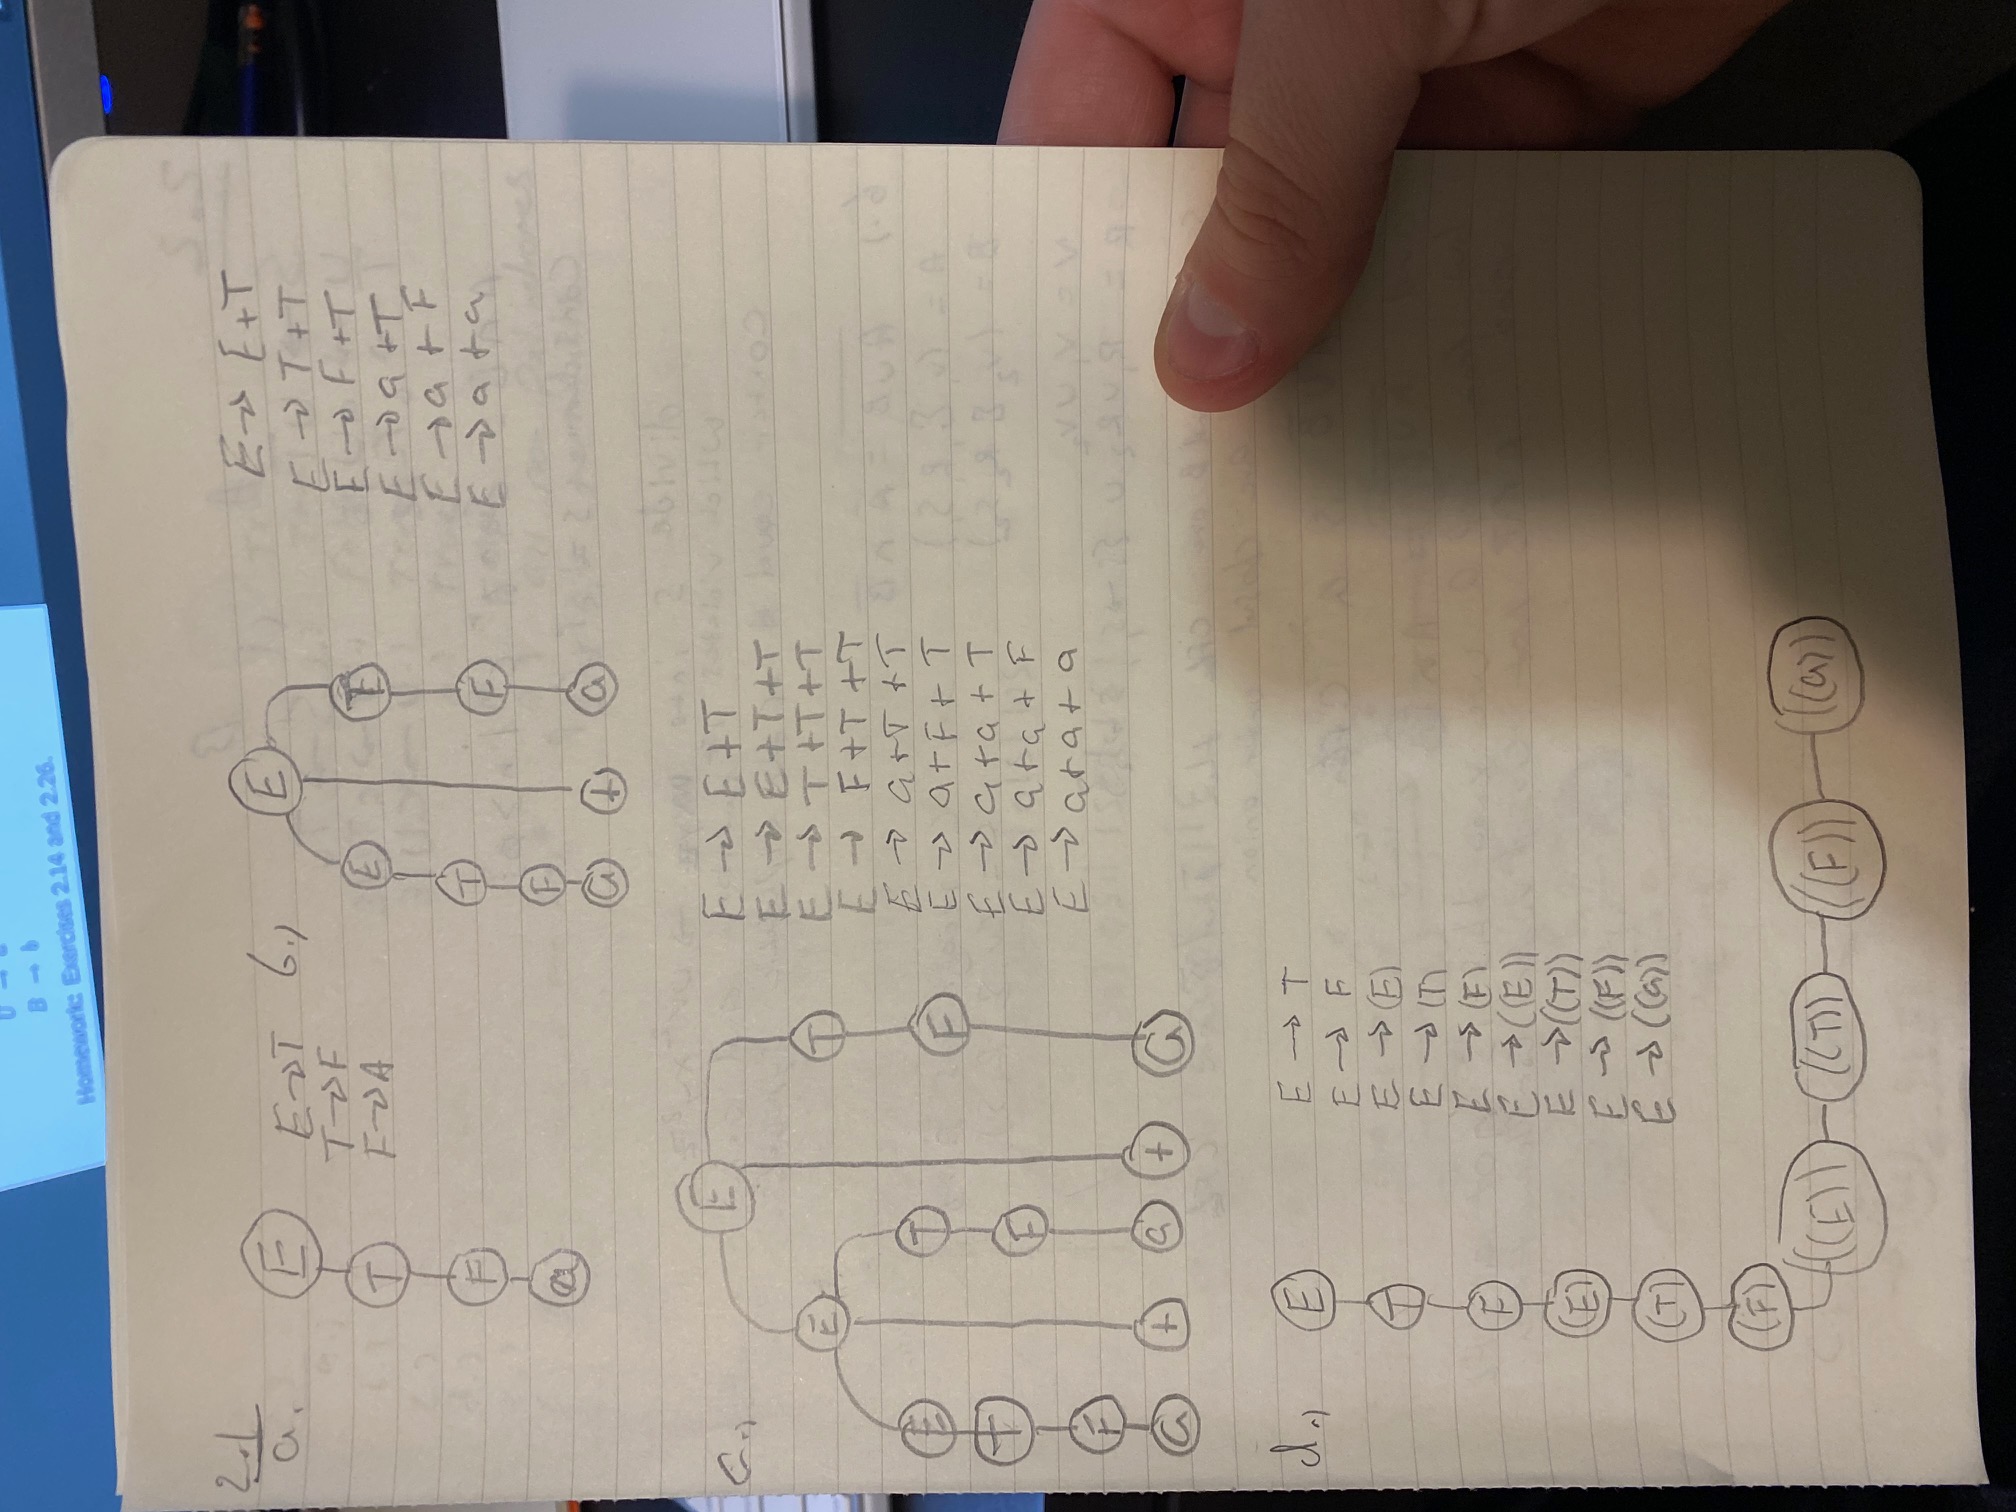 B → b
Homework: Exercises 2.14 and 2.26.
2.1
a.
E
T
F
a
E → T
T → F
F → A
b.)
E
E T
T
F F
a + a
E → E+T
E → T+T
E → F+T
E → a+T
E → a+F
E → a+a
c.)
E
E T
E T
T F F
F
a + a + a
E → E+T
E → E+T+T
E → T+T+T
E → F+T+T
E → a+T+T
E → a+F+T
E → a+a+T
E → a+a+F
E → a+a+a
d.)
E
T
F
(E)
(T)
(F)
((E)) ((T)) ((F)) ((a))
E → T
E → F
E → (E)
E → (T)
E → (F)
E → ((E))
E → ((T))
E → ((F))
E → ((a))